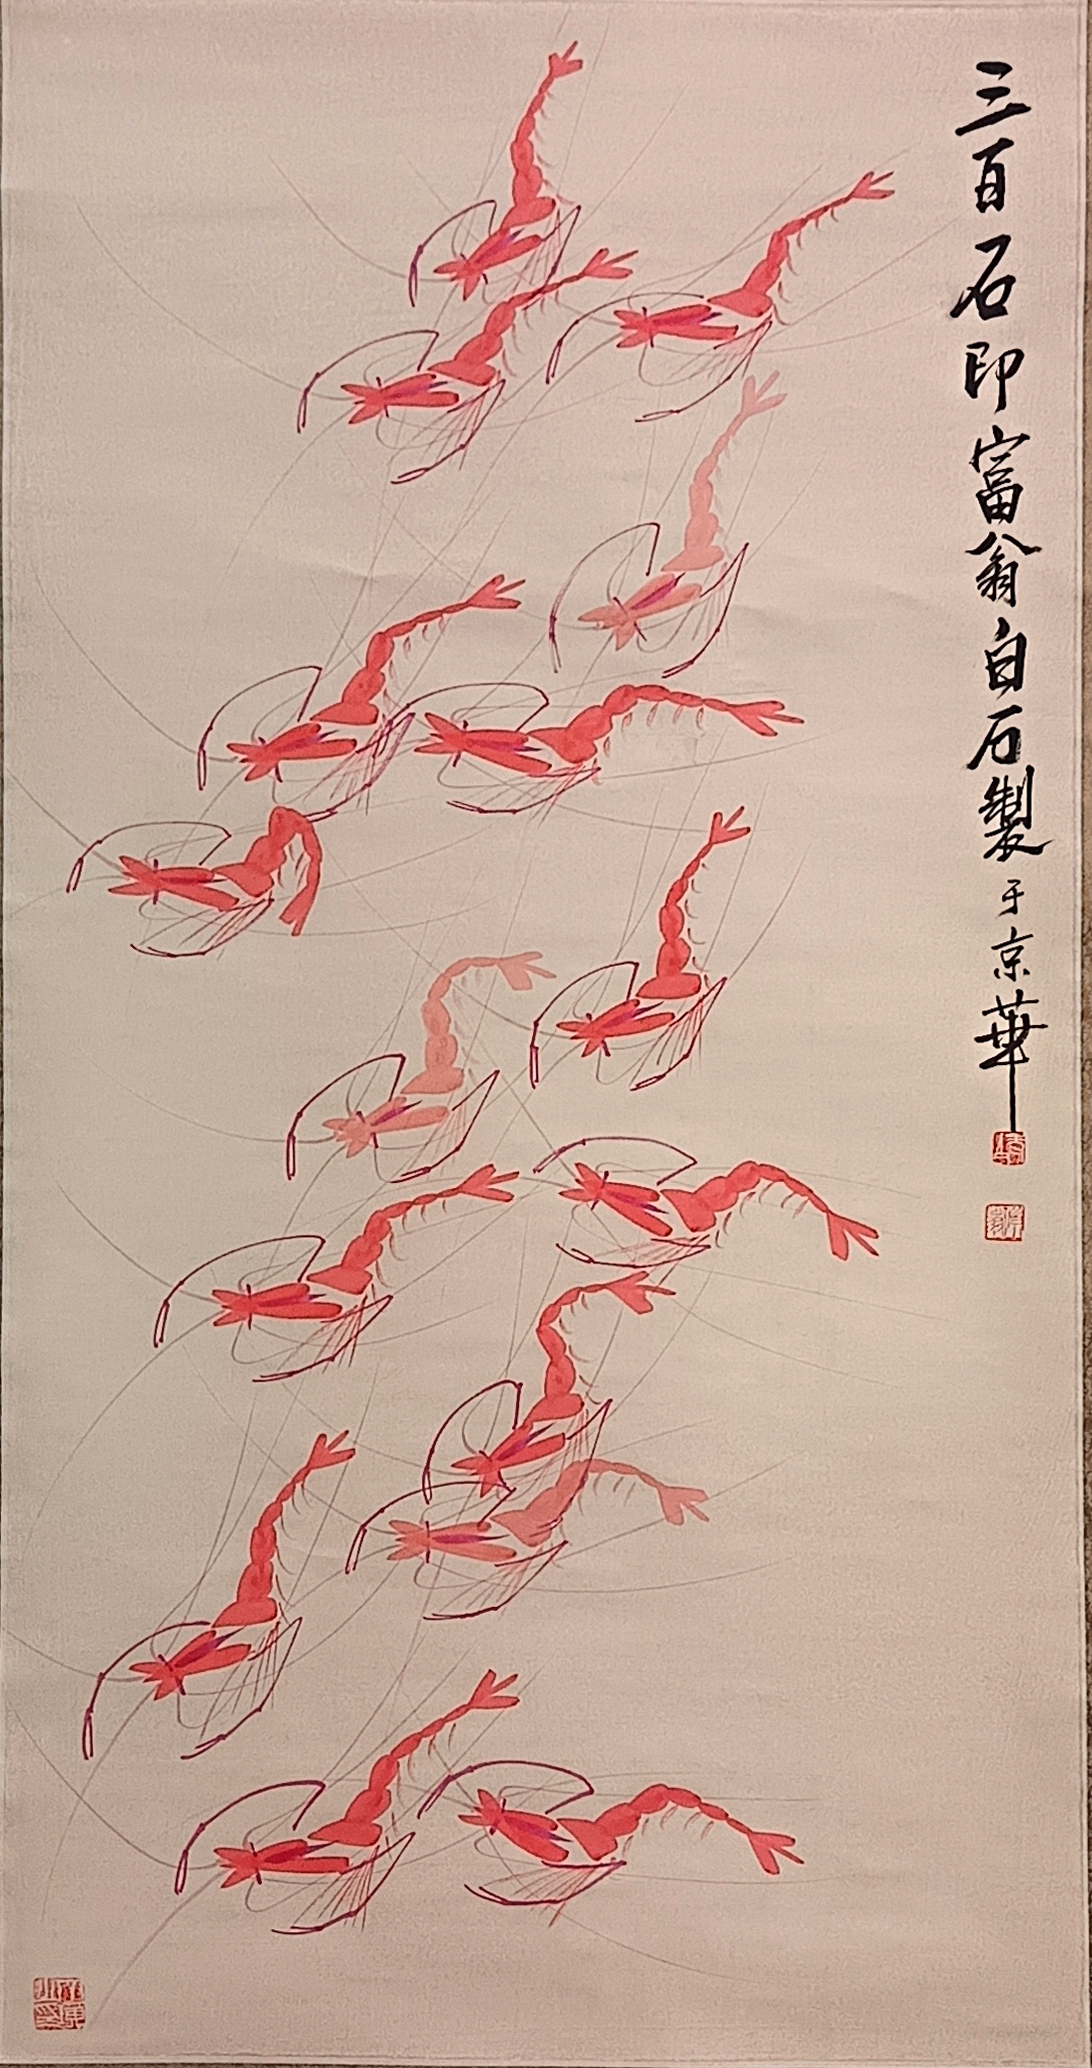 三百石印富翁白石製于京華